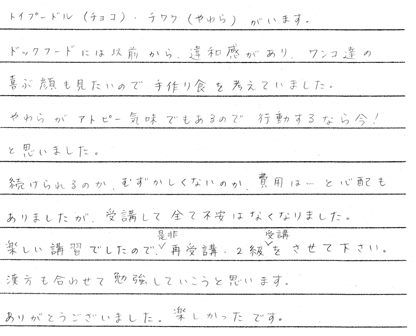 トイプードル（チョコ）・チワワ（やわら）がいます。
ドックフードには以前から、違和感があり、ワンコ達の
喜ぶ顔も見たいので手作り食を考えていました。
やわらがアトピー気味でもあるので行動するなら今！
と思いました。
続けられるのか、むずかしくないのか、費用は…と心配も
ありましたが、受講して全て不安はなくなりました。
楽しい講習でしたので、是非再受講・2級受講をさせて下さい。
漢方も合わせて勉強していこうと思います。
ありがとうございました。楽しかったです。